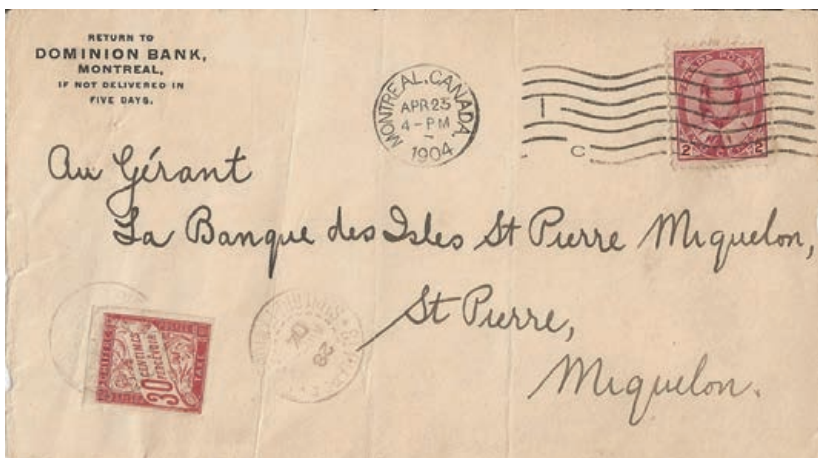 RETURN TO
DOMINION BANK,
MONTREAL,
IF NOT DELIVERED IN
FIVE DAYS.
MONTREAL, CANADA.
APR 23
4-PM
1904
I
C
CANADA POSTAGE
2 CENTS 2
Au Gérant
La Banque des Isles St Pierre Miquelon,
St Pierre,
Miquelon.
30
CENTIMES
PERCEVOIR
TAXE
28
04